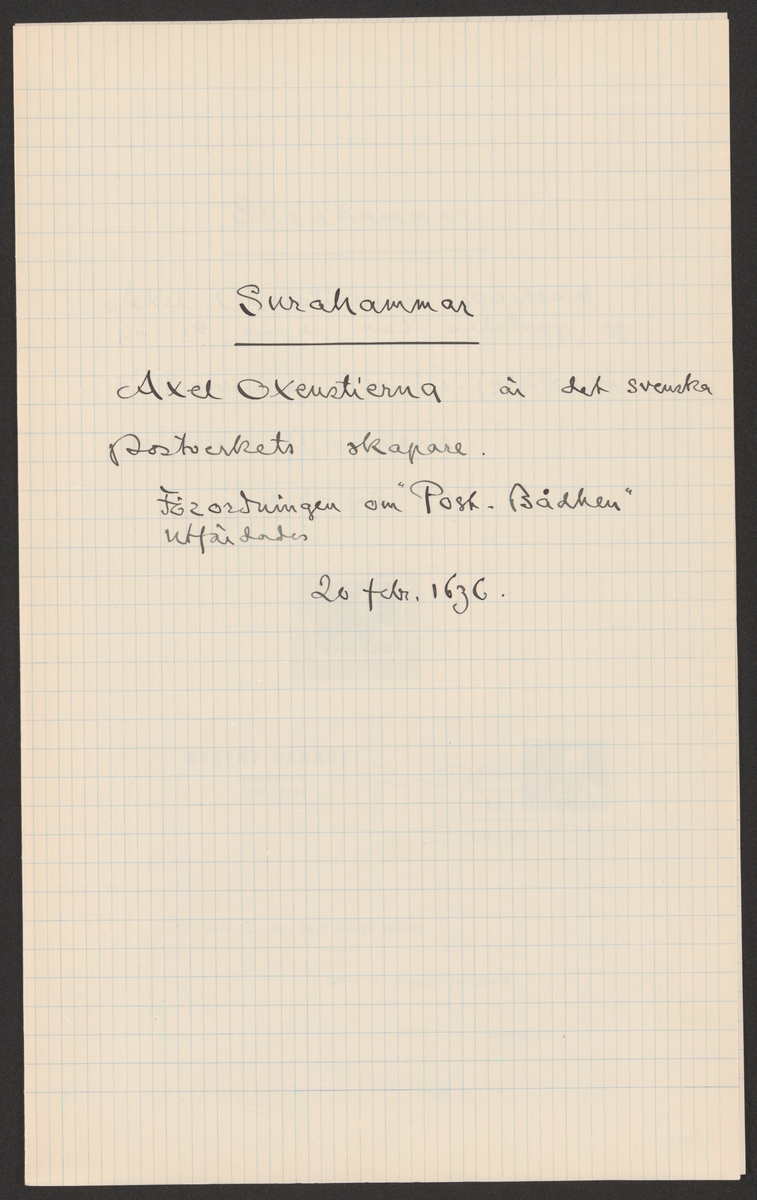 Surahammar
Axel Oxenstierna är det svenska
postverkets skapare.
Förordningen om "Post-Bådhen"
utfärdades
20 febr. 1636.